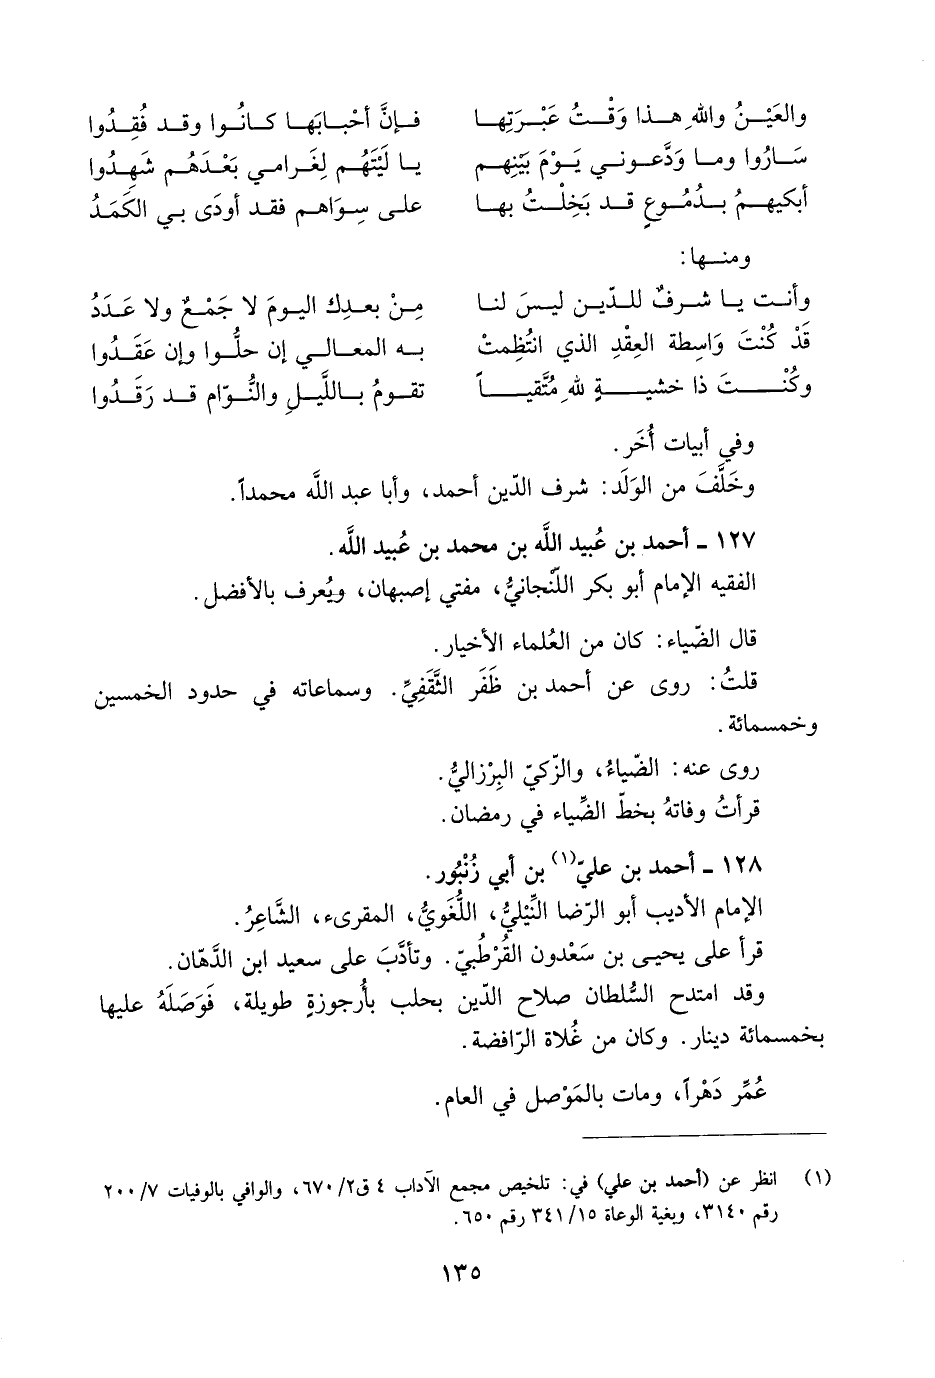 والعَيْنُ واللهِ هذا وَقْتُ عَبْرَتِها فإنَّ أحْبابَها كانُوا وقد فُقِدُوا
سَارُوا وما وَدَّعوني يَوْمَ بَيْنِهم يا لَيْتَهُم لِغَرامي بَعْدَهُم شَهِدُوا
أبكيهمُ بدُمُوعٍ قد بَخِلْتُ بها على سِوَاهم فقد أودَى بي الكَمَدُ
ومنها:
وأنت يا شرفٌ للدّين ليسَ لنا مِنْ بعدِك اليومَ لا جَمْعٌ ولا عَدَدُ
قَدْ كُنْتَ وَاسِطة العِقْدِ الذي انتُظِمتْ به المعالي إن حلُّوا وإن عَقَدُوا
وكُنْتَ ذا خشيةٍ للهِ مُتَّقِياً تقومُ باللَّيلِ والنُّوّام قد رَقَدُوا
وفي أبيات أُخَر.
وخَلَّفَ من الوَلَد: شرف الدّين أحمد، وأبا عبد اللَّه محمداً.
١٢٧ ـ أحمد بن عُبيد اللَّه بن محمد بن عُبيد اللَّه.
الفقيه الإمام أبو بكر اللَّنْجانيُّ، مفتي إصبهان، ويُعرف بالأفضل.
قال الضّياء: كان من العُلماء الأخيار.
قلتُ: روى عن أحمد بن ظَفَر الثَّقَفِيِّ. وسماعاته في حدود الخمسين
وخمسمائة.
روى عنه: الضّياءُ، والزّكيّ البِرْزاليُّ.
قرأتُ وفاتهُ بخطّ الضِّياء في رمضان.
١٢٨ ـ أحمد بن عليّ(١) بن أبي زُنْبُور.
الإمام الأديب أبو الرّضا النِّيْليُّ، اللُّغَويُّ، المقرىء، الشَّاعِرُ.
قرأ على يحيى بن سَعْدون القُرْطُبيّ. وتأدَّبَ على سعيد ابن الدَّهّان.
وقد امتدح السُّلطان صلاح الدّين بحلب بأُرجوزةٍ طويلة، فَوَصَلَهُ عليها
بخمسمائة دينار. وكان من غُلاة الرّافضة.
عُمِّر دَهْراً، ومات بالمَوْصل في العام.
(١) انظر عن (أحمد بن علي) في: تلخيص مجمع الآداب ٤ ق٢/٦٧٠، والوافي بالوفيات ٧/٢٠٠
رقم ٣١٤٠، وبغية الوعاة ٣٤١/١٥ رقم ٦٥٠.
١٣٥